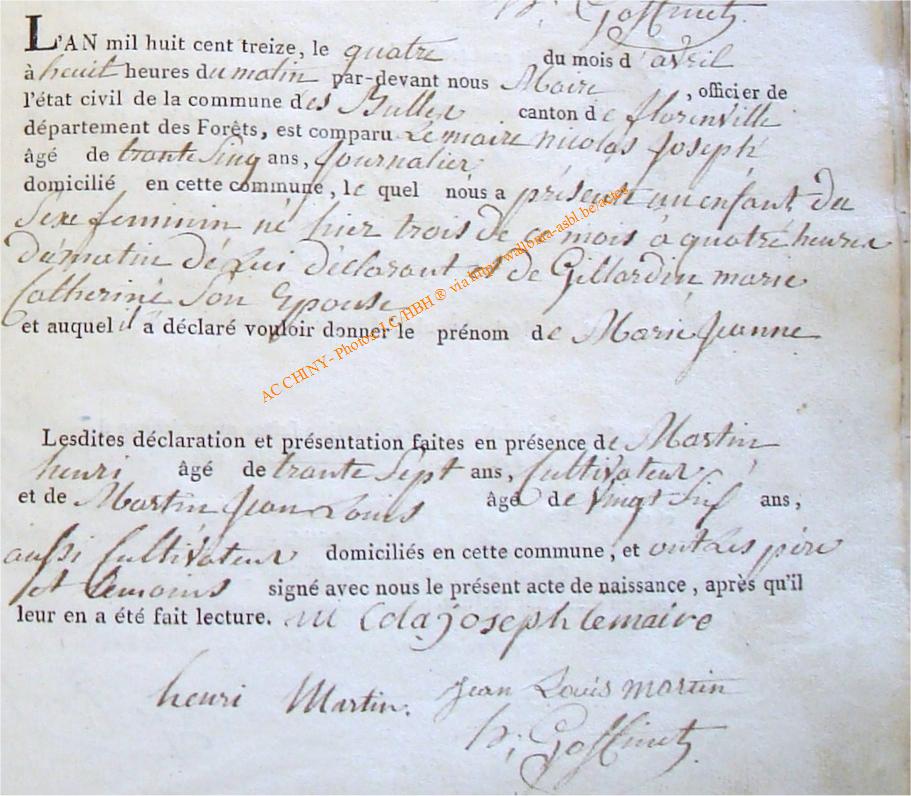 h; Goffinet.
L'AN mil huit cent treize, le quatre du mois d'avril
à heuit heures du matin par-devant nous Maire , officier de
l'état civil de la commune des Bulles canton de florenville
département des Forêts, est comparu Lemaire nicolas Joseph
âgé de trante Sinq ans, Journalier
domicilié en cette commune, le quel nous a présenté un enfant du
Sexe feminin né hier trois de ce mois à quatre heures
du matin de Lui déclarant et de Gillardin marie
Catherine Son Epouse
et auquel il a déclaré vouloir donner le prénom de Marie Jeanne
AC CHINY - Photos LC/HBH ® via http://wallonia-asbl.be/actes
Lesdites déclaration et présentation faites en présence de Martin
henri âgé de trante Sept ans, Cultivateur
et de Martin Jean Louis âgé de vingt Sinq ans,
aussi Cultivateur domiciliés en cette commune, et ont Les père
et temoins signé avec nous le présent acte de naissance, après qu'il
leur en a été fait lecture. ni Cola joseph lemaire
henri Martin. Jean Louis martin
h; Goffinet.